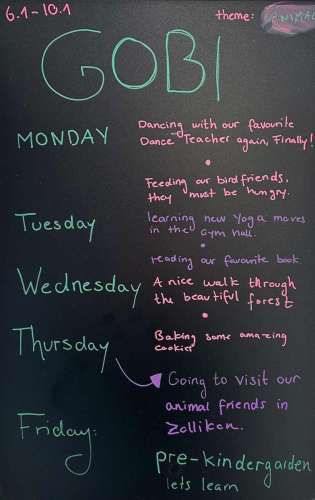 6.1-10.1
theme: ANIMAL
GOBI
MONDAY
Dancing with our favourite
Dance Teacher again, Finally!
Feeding our bird friends.
they must be hungry.
Tuesday
learning new Yoga moves
in the Gym hall.
reading our favourite book
Wednesday
A nice walk through
the beautiful forest
Thursday
Baking some amazing
cookies
Going to visit our
animal friends in
Zollikon.
Friday:
pre-kindergarden
lets learn